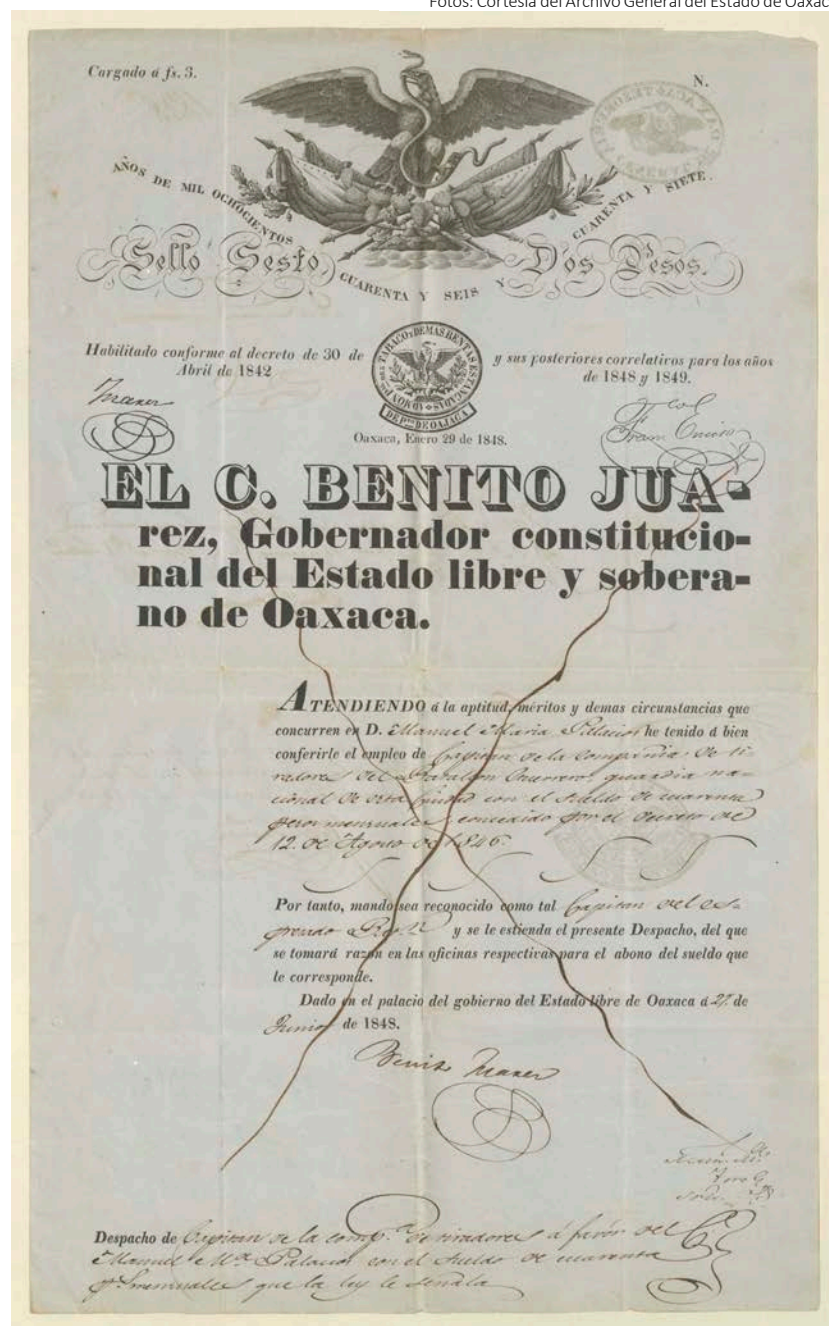 Fotos: Cortesía del Archivo General del Estado de Oaxac
Cargado á fs. 3.
N.
AÑOS DE MIL OCHOCIENTOS CUARENTA Y SEIS Y CUARENTA Y SIETE.
Sello Sesto,
Dos Pesos.
Habilitado conforme al decreto de 30 de
Abril de 1842
TABACO Y DEMAS RENTAS ESTANCADAS
DE OAJACA
y sus posteriores correlativos para los años
de 1848 y 1849.
Juarez
Oaxaca, Enero 29 de 1848.
EL C. BENITO JUA-
rez, Gobernador constitucio-
nal del Estado libre y sobera-
no de Oaxaca.
ATENDIENDO á la aptitud, méritos y demas circunstancias que
concurren en D. Manuel Maria Palacios he tenido á bien
conferirle el empleo de Capitan de la Compañia de ti-
radores del Batallon Guerrero, guardia na-
cional de esta Ciudad con el sueldo de cuarenta
pesos mensuales concedido por el decreto de
12. de Agosto de 1846.
Por tanto, mando sea reconocido como tal Capitan del es-
presado y se le estienda el presente Despacho, del que
se tomará razon en las oficinas respectivas para el abono del sueldo que
le corresponde.
Dado en el palacio del gobierno del Estado libre de Oaxaca á 27 de
Junio de 1848.
Benito Juarez
Despacho de Capitan de la comp.ª de tiradores á favor del C.
Manuel M.ª Palacios con el sueldo de cuarenta
p.s mensuales que la ley le señala